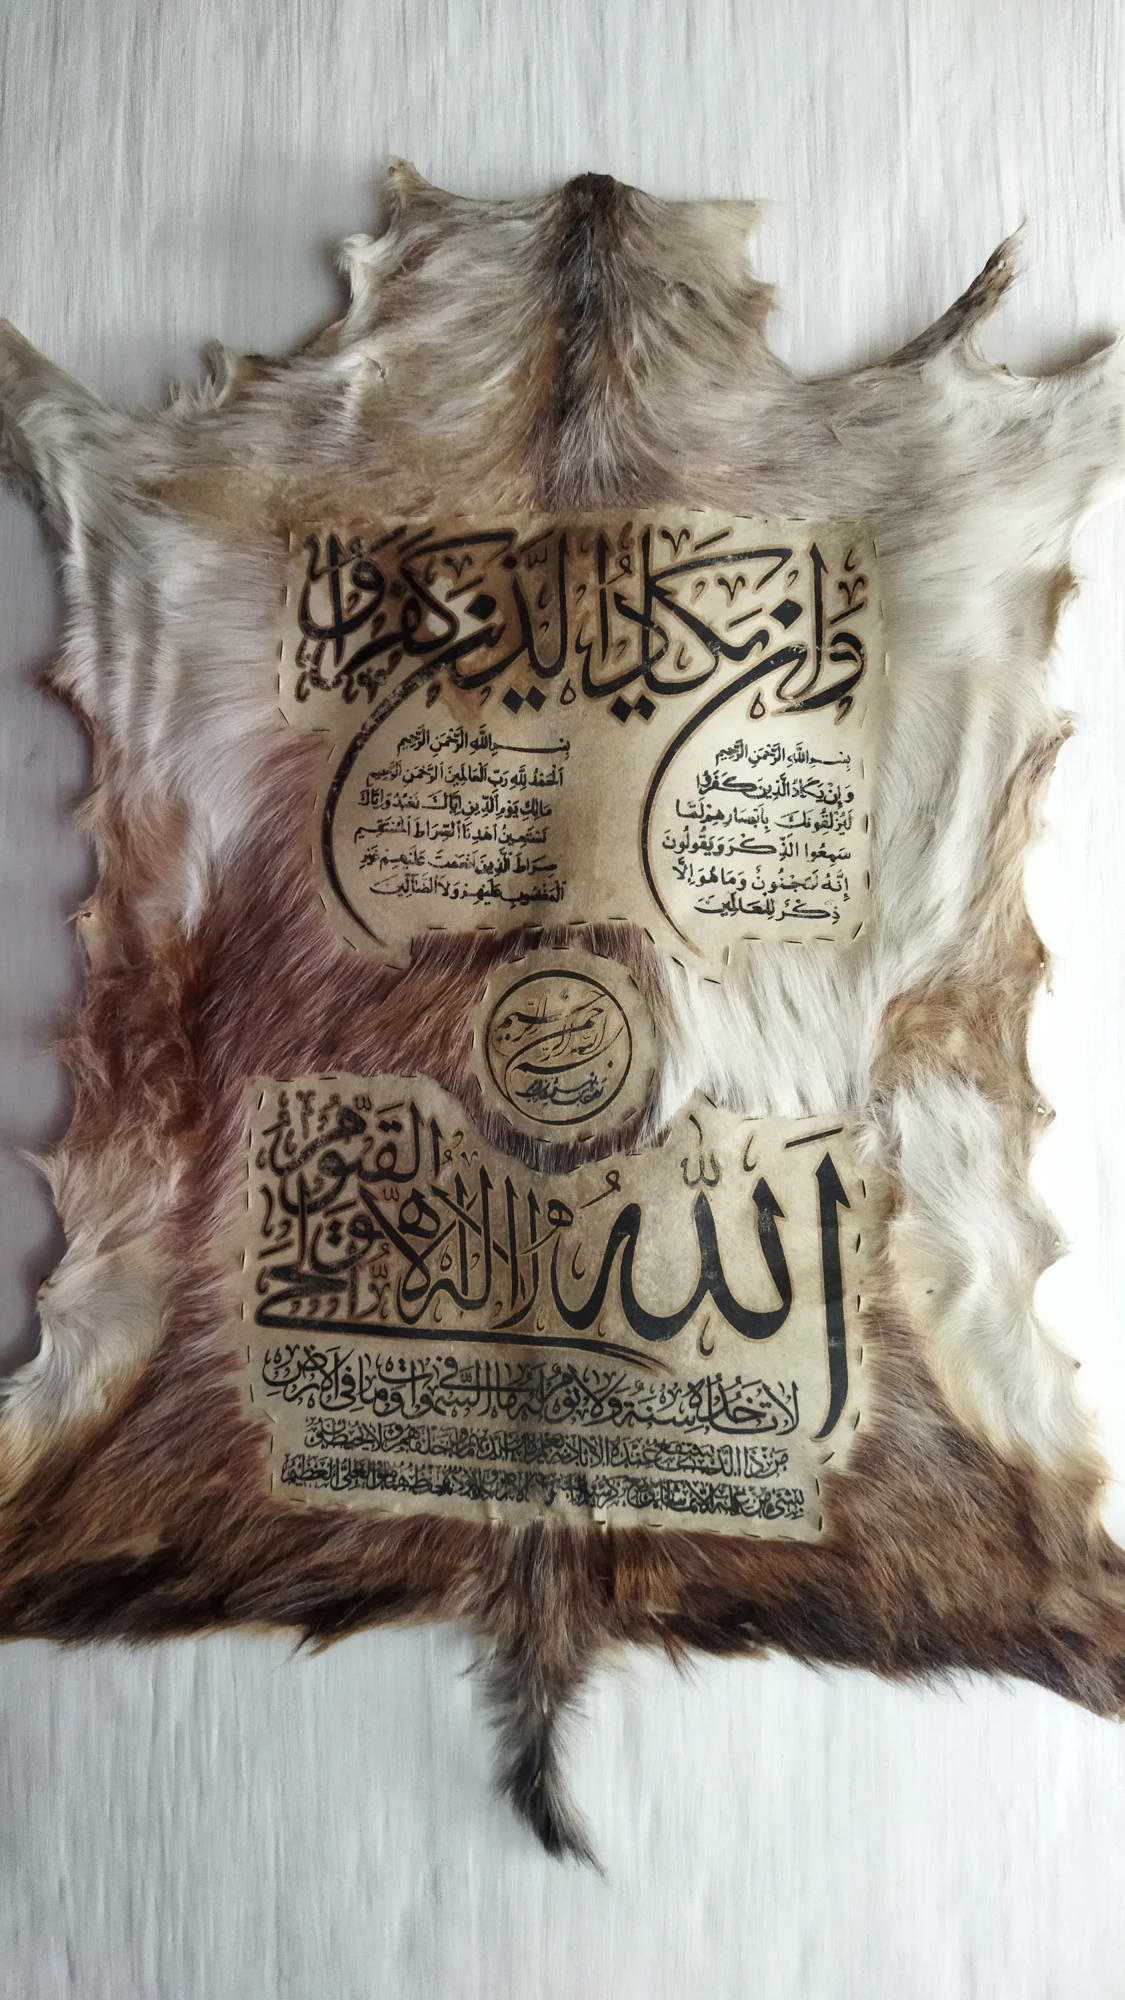 وَإِن يَكَادُ الَّذِينَ كَفَرُوا
بِسْمِ اللَّهِ الرَّحْمَنِ الرَّحِيمِ
وَإِنْ يَكَادُ الَّذِينَ كَفَرُوا
لَيُزْلِقُونَكَ بِأَبْصَارِهِمْ لَمَّا
سَمِعُوا الذِّكْرَ وَيَقُولُونَ
إِنَّهُ لَمَجْنُونٌ وَمَا هُوَ إِلَّا
ذِكْرٌ لِلْعَالَمِينَ
بِسْمِ اللَّهِ الرَّحْمَنِ الرَّحِيمِ
اَلْحَمْدُ لِلَّهِ رَبِّ الْعَالَمِينَ اَلرَّحْمَنِ الرَّحِيمِ
مَالِكِ يَوْمِ الدِّينِ إِيَّاكَ نَعْبُدُ وَإِيَّاكَ
نَسْتَعِينُ اهْدِنَا الصِّرَاطَ الْمُسْتَقِيمَ
صِرَاطَ الَّذِينَ أَنْعَمْتَ عَلَيْهِمْ غَيْرِ
الْمَغْضُوبِ عَلَيْهِمْ وَلَا الضَّالِّينَ
بسم الله الرحمن الرحيم
اَللَّهُ لَا إِلَهَ إِلَّا هُوَ الْحَيُّ الْقَيُّومُ
لَا تَأْخُذُهُ سِنَةٌ وَلَا نَوْمٌ لَهُ مَا فِي السَّمَوَاتِ وَمَا فِي الْأَرْضِ
مَنْ ذَا الَّذِي يَشْفَعُ عِنْدَهُ إِلَّا بِإِذْنِهِ يَعْلَمُ مَا بَيْنَ أَيْدِيهِمْ وَمَا خَلْفَهُمْ وَلَا يُحِيطُونَ
بِشَيْءٍ مِنْ عِلْمِهِ إِلَّا بِمَا شَاءَ وَسِعَ كُرْسِيُّهُ السَّمَوَاتِ وَالْأَرْضَ وَلَا يَئُودُهُ حِفْظُهُمَا وَهُوَ الْعَلِيُّ الْعَظِيمُ